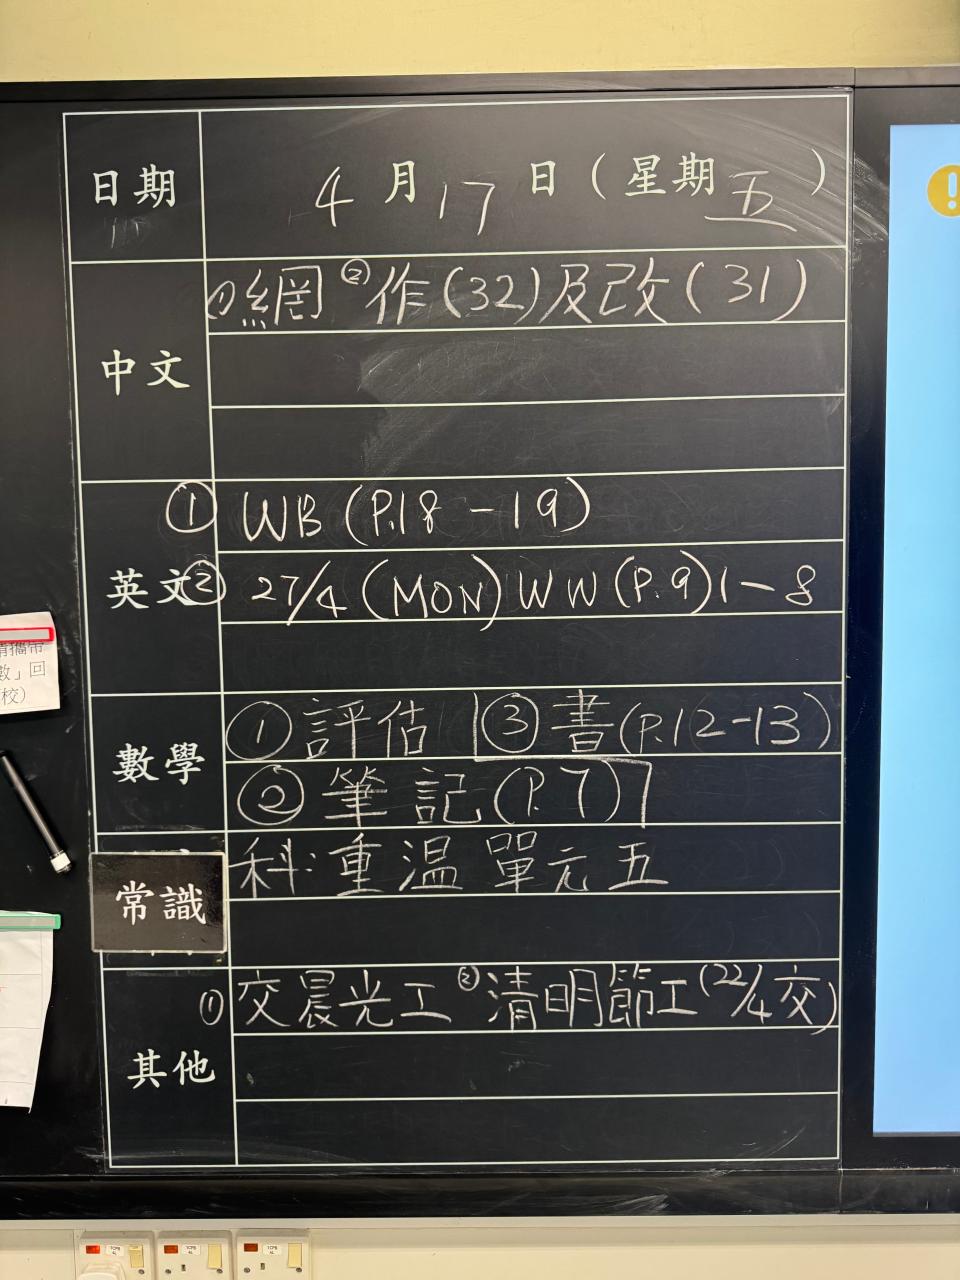 日期 4月17日(星期五)
中文 ①網 ②作(32)及改(31)
英文 ① WB (P.18-19)
② 27/4 (MON) WW (P.9) 1-8
數學 ①評估 ③書(P.12-13)
②筆記(P.7)
常識 科:重溫單元五
其他 ①交晨光工 ②清明節工(22/4交)
請攜帶
數」回
校)